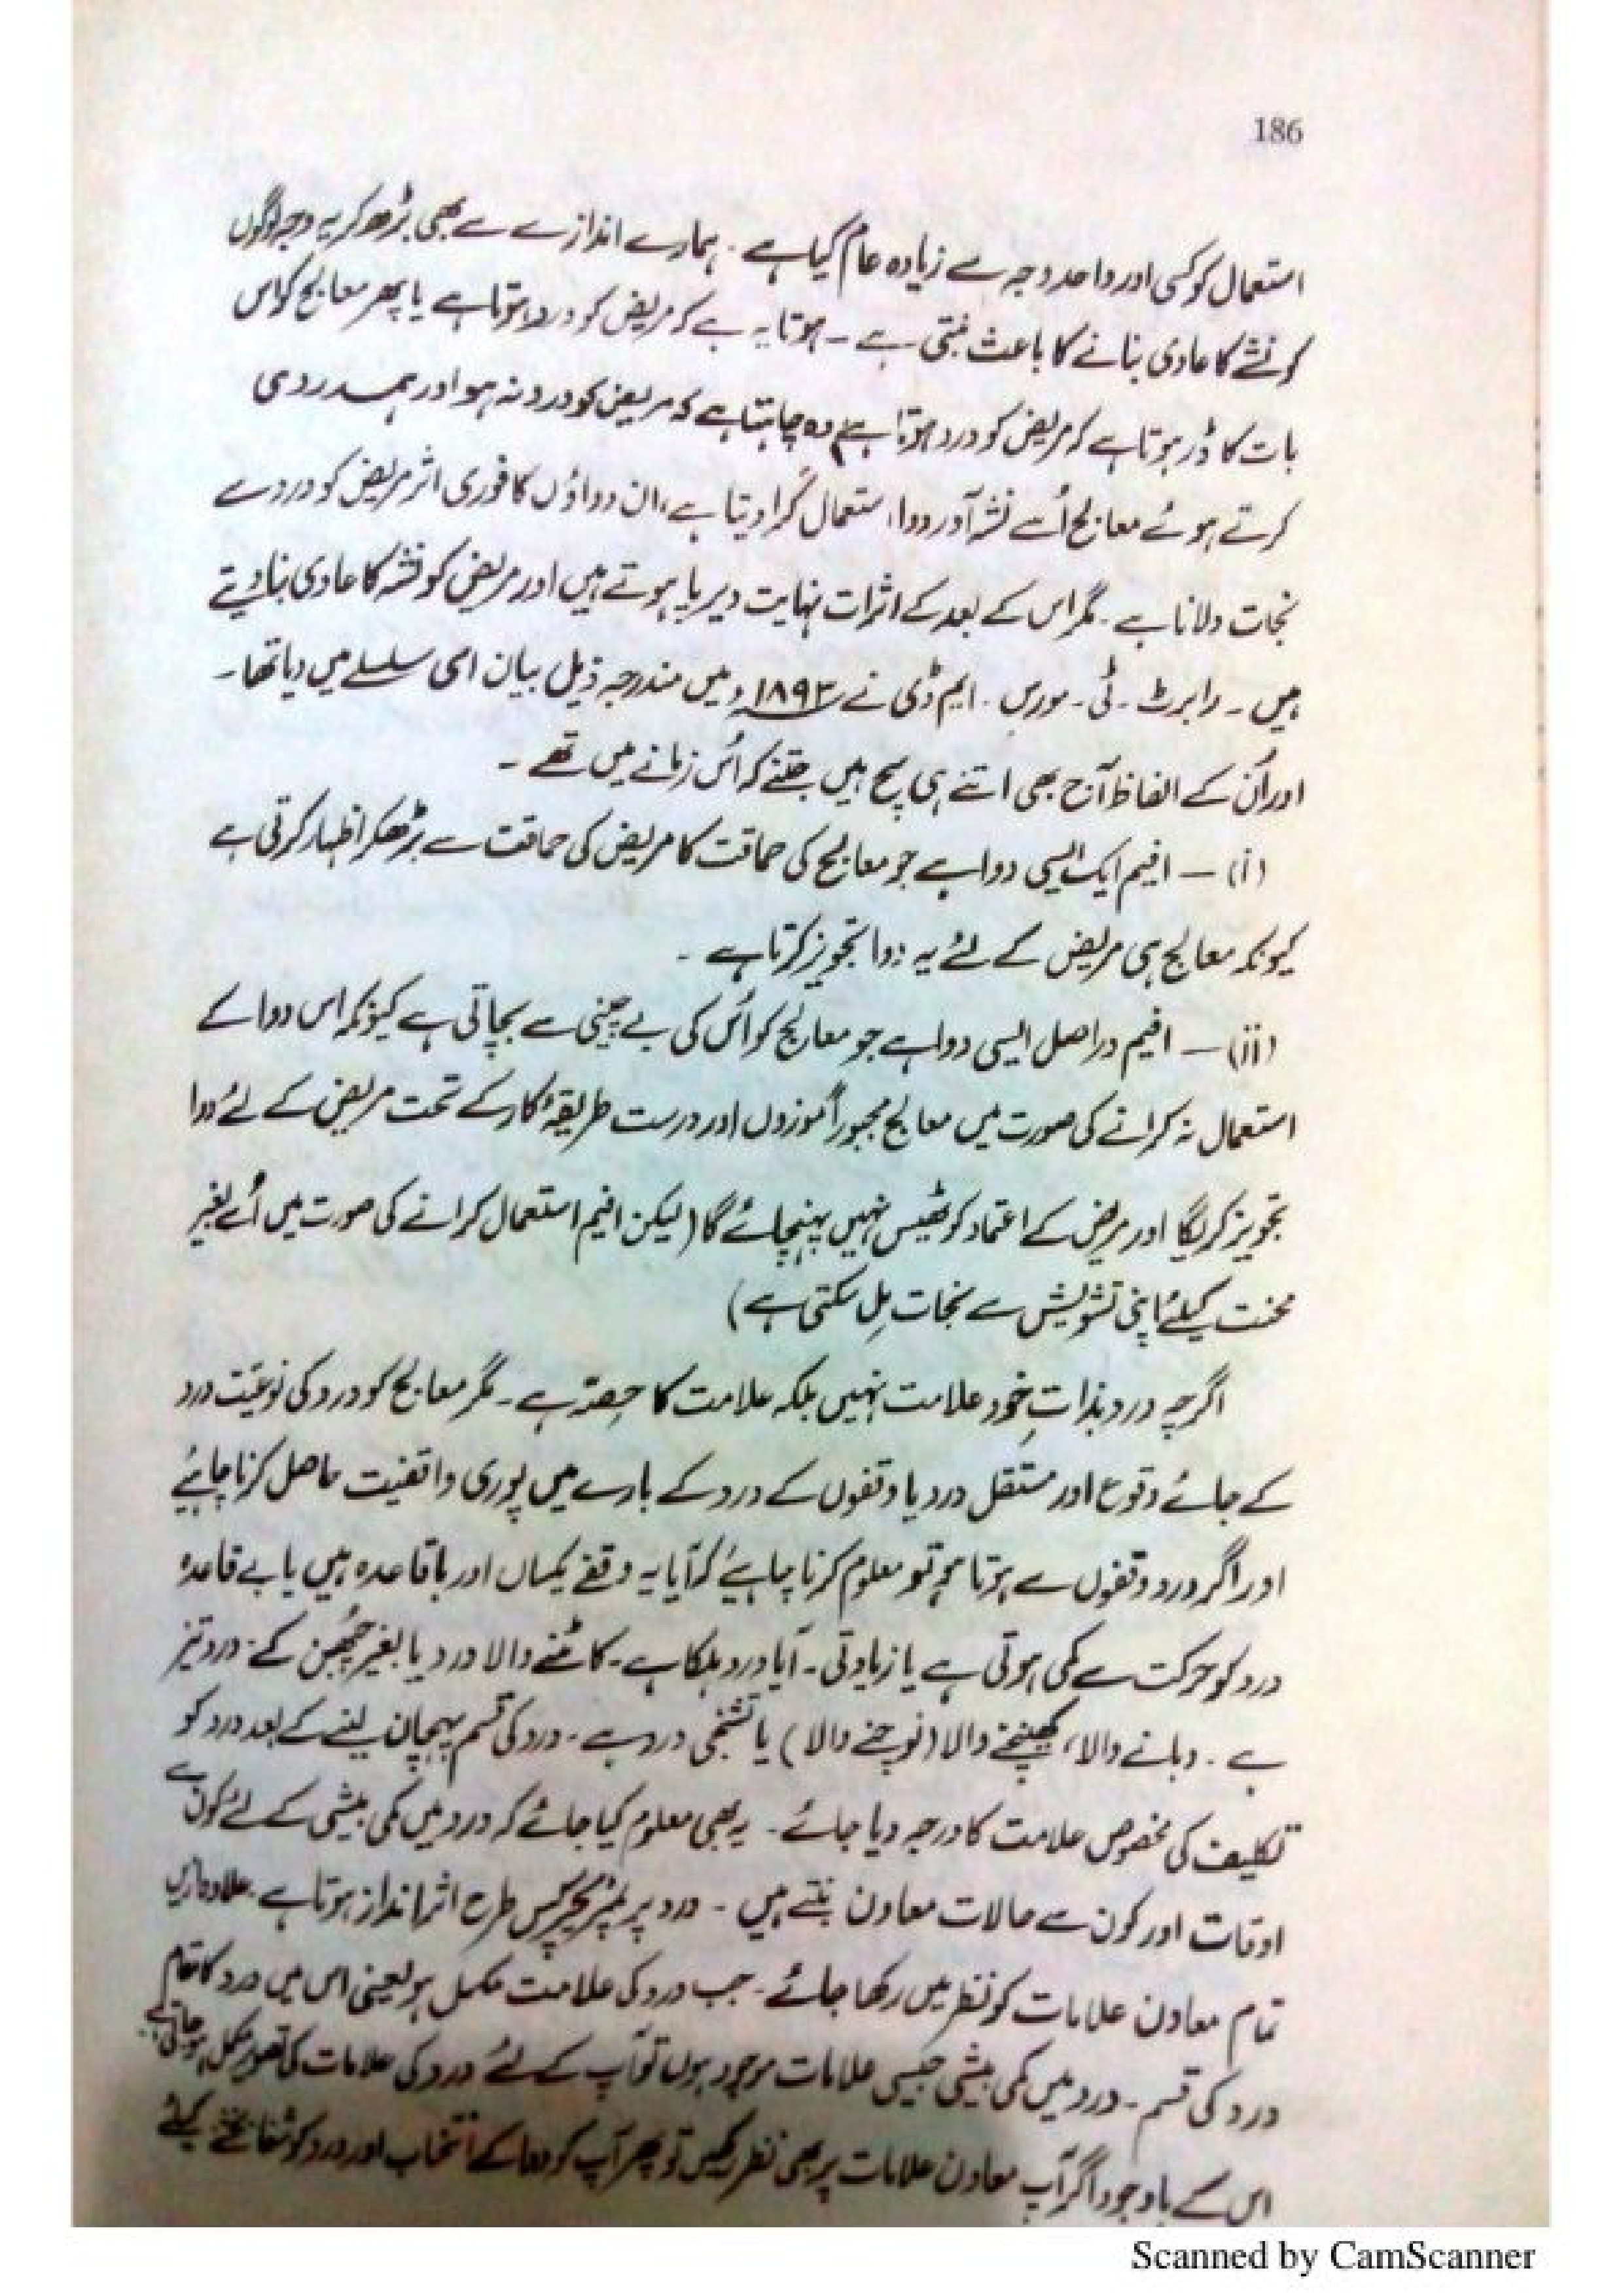 186
استعمال کو کسی اور واحد وجہ سے زیادہ عام کیا ہے ۔ ہمارے اندازے سے بھی بڑھ کر یہ وجہ لوگوں
کو نشے کا عادی بنانے کا باعث بنتی ہے ۔ ہوتا یہ ہے کہ مریض کو درد ہوتا ہے یا پھر معالج کو اس
بات کا ڈر ہوتا ہے کہ مریض کو درد ہوتا ہے وہ چاہتا ہے کہ مریض کو درد نہ ہو اور ہمدردی
کرتے ہوئے معالج اُسے نشہ آور دوا استعمال کرا دیتا ہے، ان دواؤں کا فوری اثر مریض کو درد سے
نجات دلانا ہے ۔ مگر اس کے بعد کے اثرات نہایت دیرپا ہوتے ہیں اور مریض کو نشہ کا عادی بنا دیتے
ہیں ۔ رابرٹ ۔ ٹی ۔ مورس ۔ ایم ڈی نے ۱۸۹۳ء میں مندرجہ ذیل بیان اسی سلسلے میں دیا تھا ۔
اور اُن کے الفاظ آج بھی اتنے ہی سچ ہیں جتنے کہ اُس زمانے میں تھے ۔
(i) — افیم ایک ایسی دوا ہے جو معالج کی حماقت کا مریض کی حماقت سے بڑھکر اظہار کرتی ہے
کیونکہ معالج ہی مریض کے لئے یہ دوا تجویز کرتا ہے ۔
(ii) — افیم دراصل ایسی دوا ہے جو معالج کو اُس کی بے چینی سے بچاتی ہے کیونکہ اس دوا کے
استعمال نہ کرانے کی صورت میں معالج مجبوراً موزوں اور درست طریقۂ کار کے تحت مریض کے لئے دوا
تجویز کریگا اور مریض کے اعتماد کو ٹھیس نہیں پہنچائے گا (لیکن افیم استعمال کرانے کی صورت میں اُسے بغیر
محنت کیلئے اپنی تشویش سے نجات مِل سکتی ہے)
اگرچہ درد بذاتِ خود علامت نہیں بلکہ علامت کا حصّہ ہے ۔ مگر معالج کو درد کی نوعیّت درد
کے جائے وقوع اور مستقل درد یا وقفوں کے درد کے بارے میں پوری واقفیت حاصل کرنا چاہیئے
اور اگر درد وقفوں سے ہوتا ہو تو معلوم کرنا چاہیئے کہ آیا یہ وقفے یکساں اور باقاعدہ ہیں یا بے قاعدہ
درد کو حرکت سے کمی ہوتی ہے یا زیادتی ۔ آیا درد ہلکا ہے ۔ کاٹنے والا درد یا بغیر چُبھن کے ۔ درد تیز
ہے ۔ دبانے والا، کھینچنے والا (نوچنے والا) یا تشنجی درد ہے ۔ درد کی قسم پہچان لینے کے بعد درد کو
تکلیف کی مخصوص علامت کا درجہ دیا جائے ۔ یہ بھی معلوم کیا جائے کہ درد میں کمی بیشی کے لئے کون سے
اوقات اور کون سے حالات معاون بنتے ہیں ۔ درد پر ٹمپریچر کس طرح اثر انداز ہوتا ہے ۔ علاوہ ازیں
تمام معاون علامات کو نظر میں رکھا جائے ۔ جب درد کی علامت مکمل ہو یعنی اس میں درد کا مقام
درد کی قسم ۔ درد میں کمی بیشی جیسی علامات موجود ہوں تو آپ کے لئے درد کی علامات کی تصویر مکمل ہو جاتی ہے
اس کے باوجود اگر آپ معاون علامات پر بھی نظر رکھیں تو پھر آپ کو دوا کے انتخاب اور درد کو شفا بخشنے کیلئے
Scanned by CamScanner